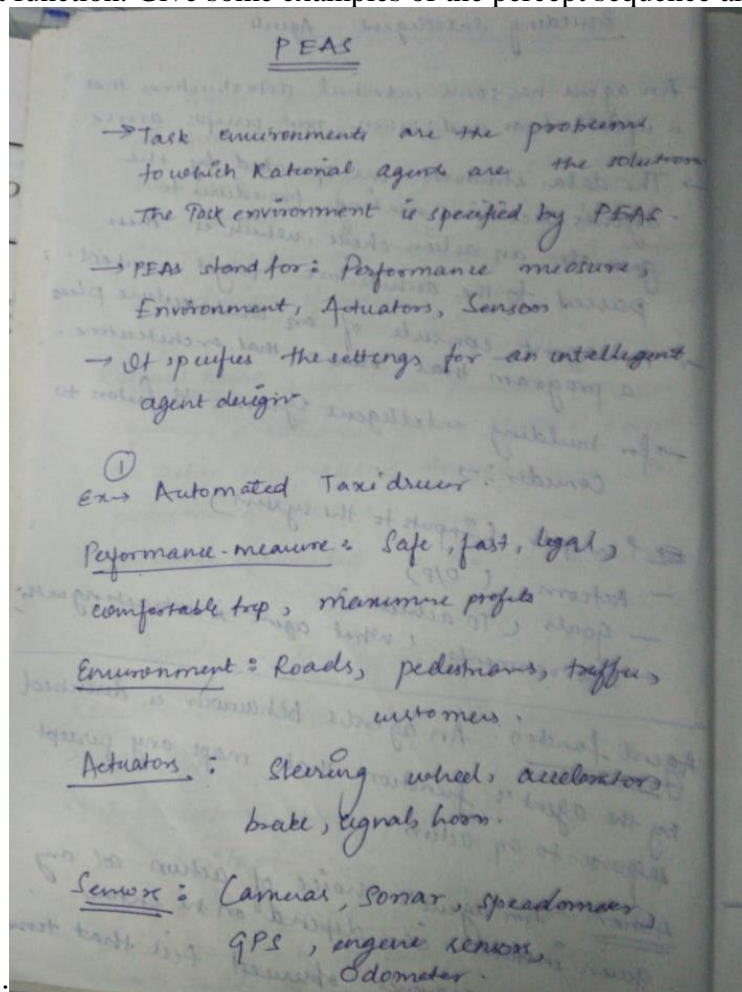 t function. Give some examples of the percept sequence an
PEAS
→ Task environments are the problems
to which Rational agents are the solution
The Task environment is specified by PEAS.
→ PEAS stand for: Performance measure,
Environment, Actuators, Sensors
→ It specifies the settings for an intelligent
agent design
①
Ex→ Automated Taxi driver:
Performance-measure: Safe, fast, legal,
comfortable trip, maximize profits
Environment: Roads, pedestrians, traffic,
customers.
Actuators: Steering wheel, accelerator,
brake, signal, horn.
Sensors: Cameras, Sonar, speedometer,
GPS, engine sensors,
Odometer.
.